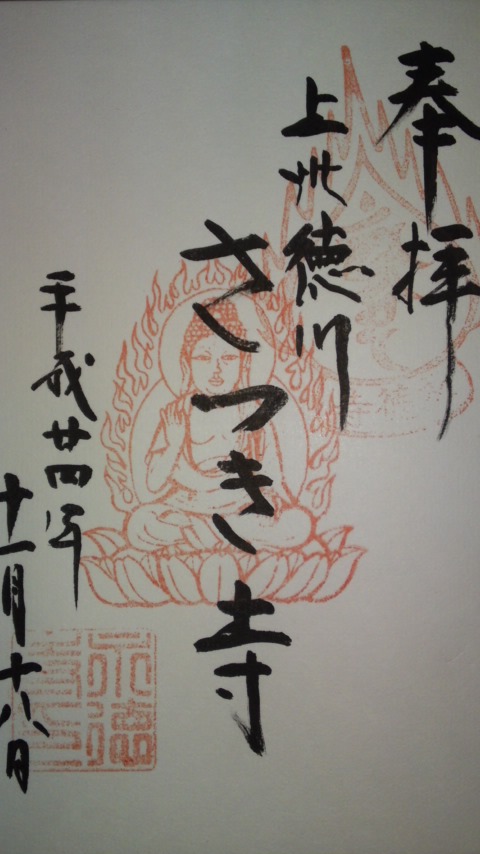 奉拝
上州徳川
さつき寺
平成廿四年
十一月十八日